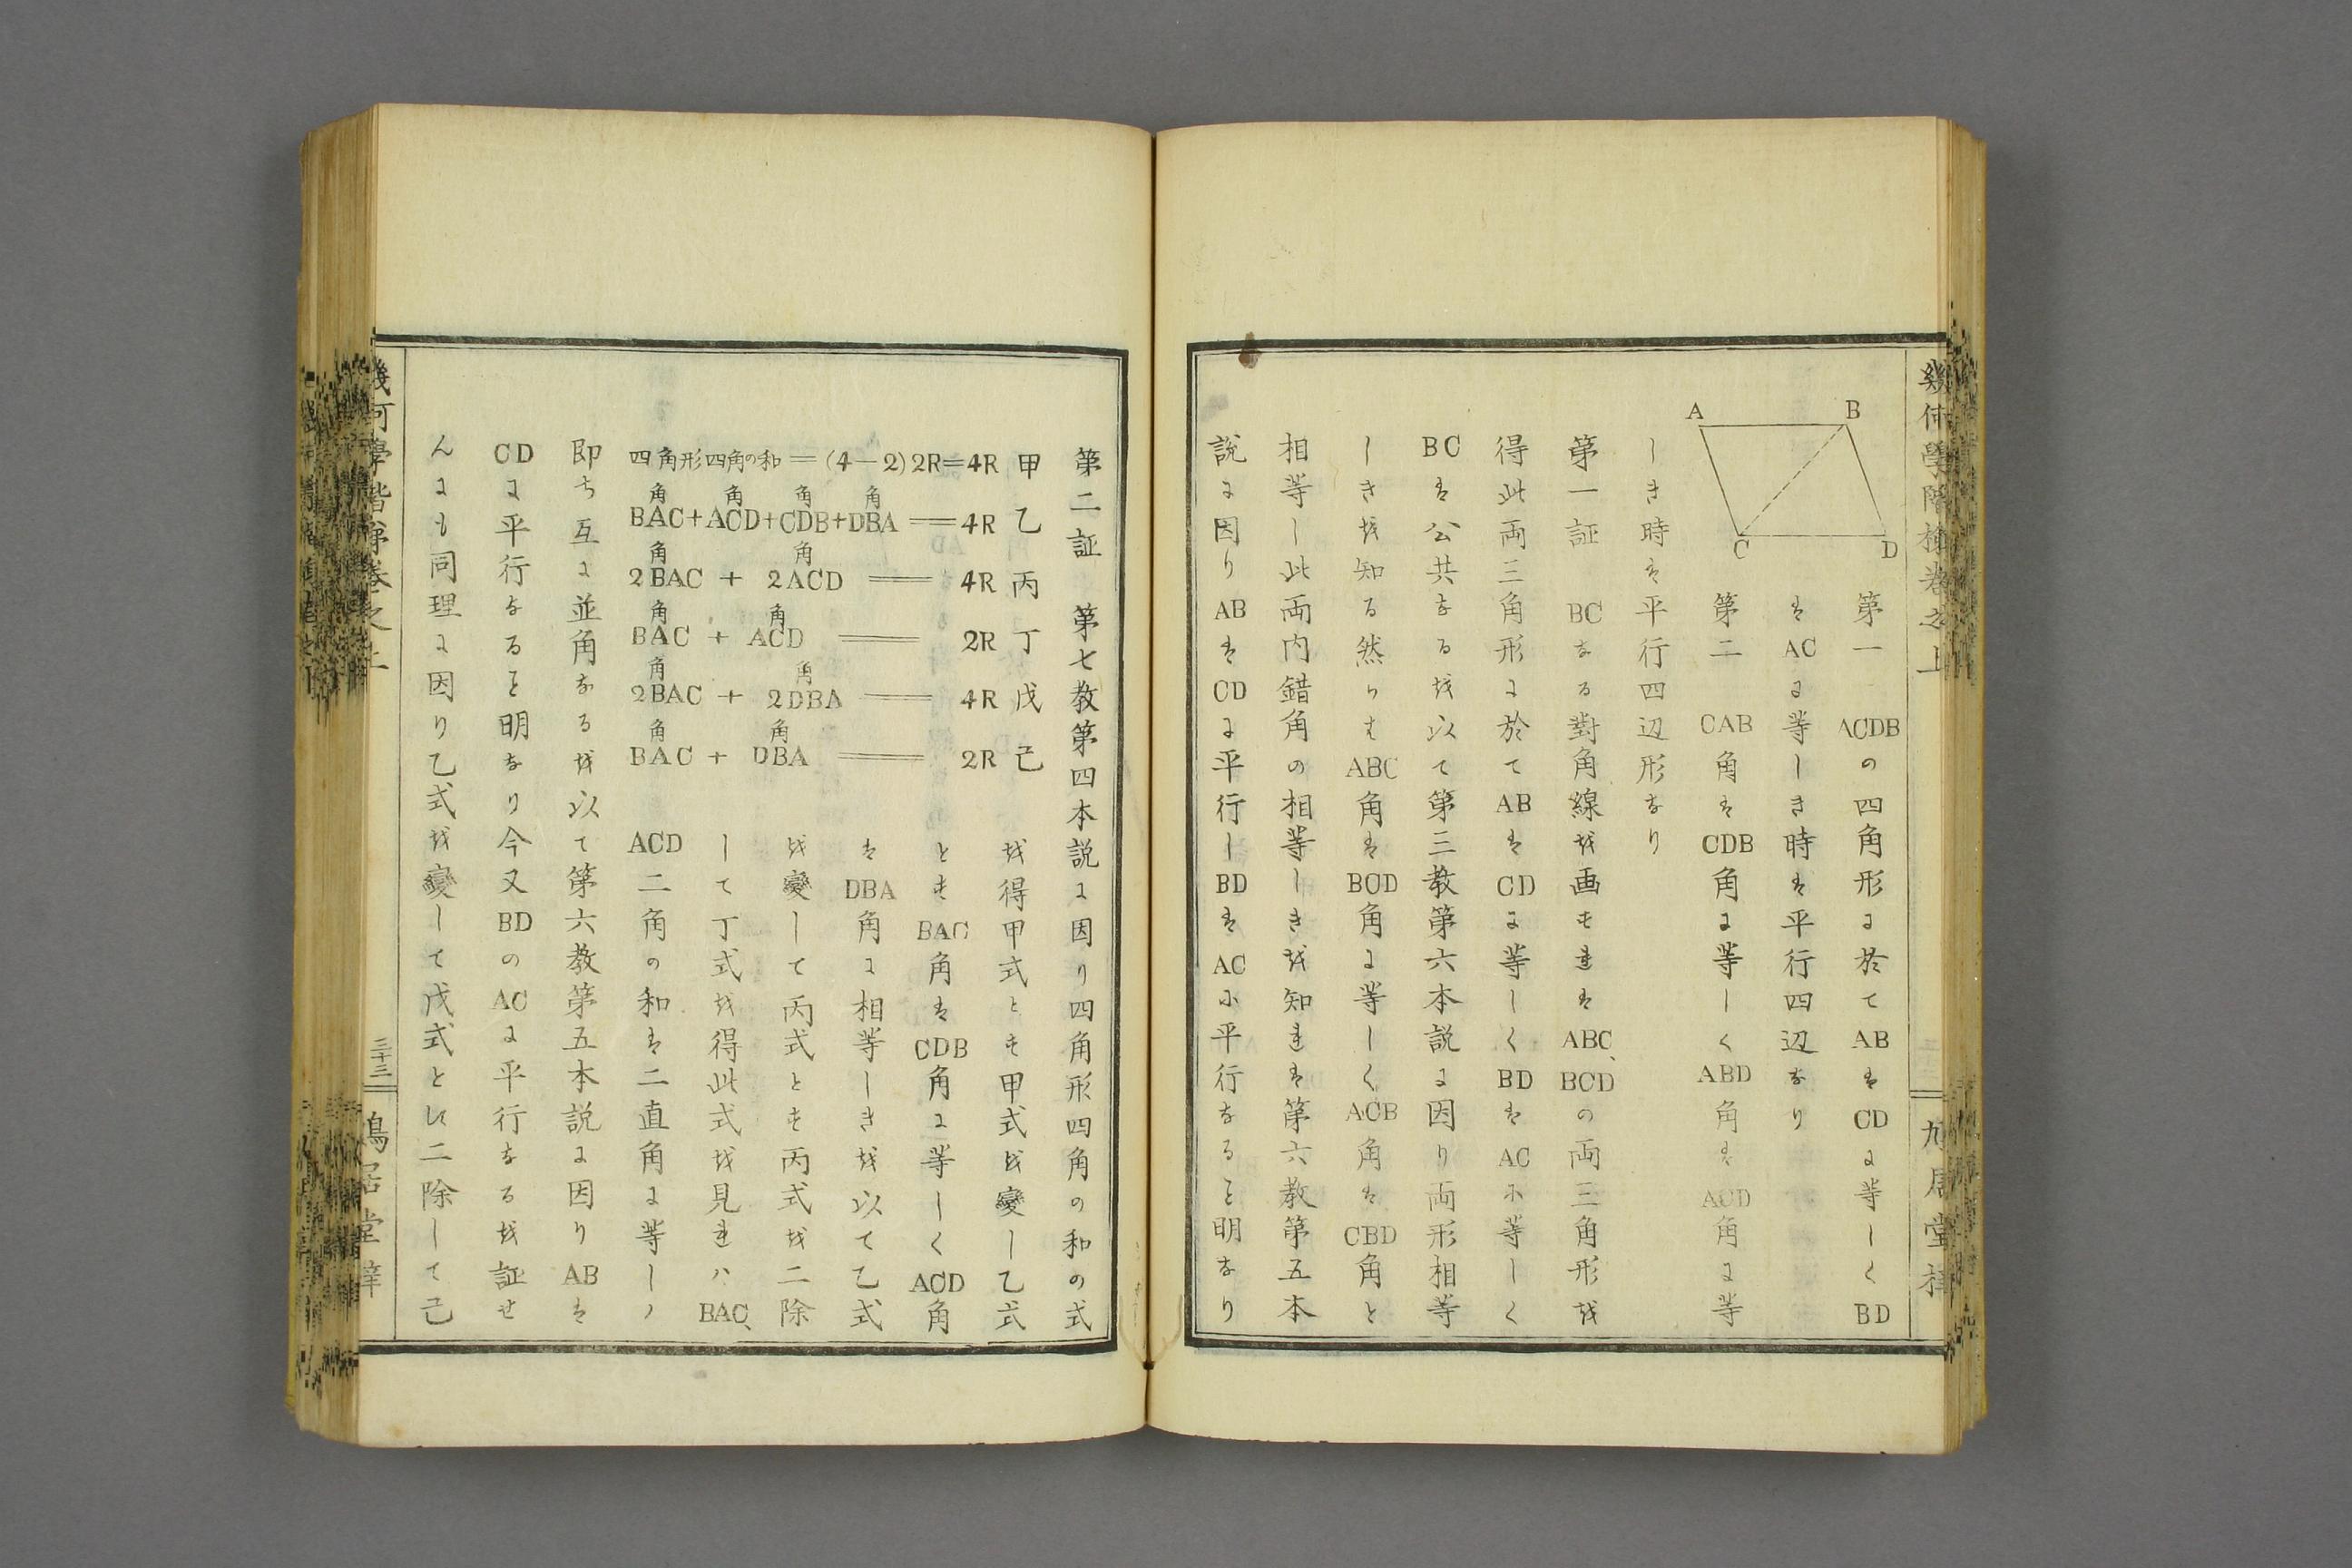 幾何學階梯卷之上
鳩居堂梓
A B
C D
第一 ACDBの四角形に於てABはCDに等しくBD
はACに等しき時は平行四辺なり
第二 CAB角はCDB角に等しくABD角はACD角に等
しき時は平行四辺形なり
第一証 BCなる對角線を画すればABC、BCDの両三角形を
得此両三角形に於てABはCDに等しくBDはACに等しく
BCは公共なるを以て第三教第六本説に因り両形相等
しきを知る然らばABC角はBCD角に等しくACB角はCBD角と
相等し此両内錯角の相等しきを知れば第六教第五本
説に因りABはCDに平行しBDはACに平行なること明なり
第二証 第七教第四本説に因り四角形四角の和の式
甲 四角形四角の和=(4-2)2R=4R
乙 角BAC+角ACD+角CDB+角DBA=4R
丙 2角BAC+2角ACD=4R
丁 角BAC+角ACD=2R
戊 2角BAC+2角DBA=4R
己 角BAC+角DBA=2R
を得甲式とす甲式を變し乙式
とすBAC角はCDB角に等しくACD角
はDBA角に相等しきを以て乙式
を變して丙式とす丙式を二除
して丁式を得此式を見れハBAC、
ACD二角の和は二直角に等し
即ち互に並角なるを以て第六教第五本説に因りABは
CDに平行なること明なり今又BDのACに平行なるを証せ
んにも同理に因り乙式を變して戊式とし二除して己
幾何學階梯卷之上
三十三
鳩居堂梓